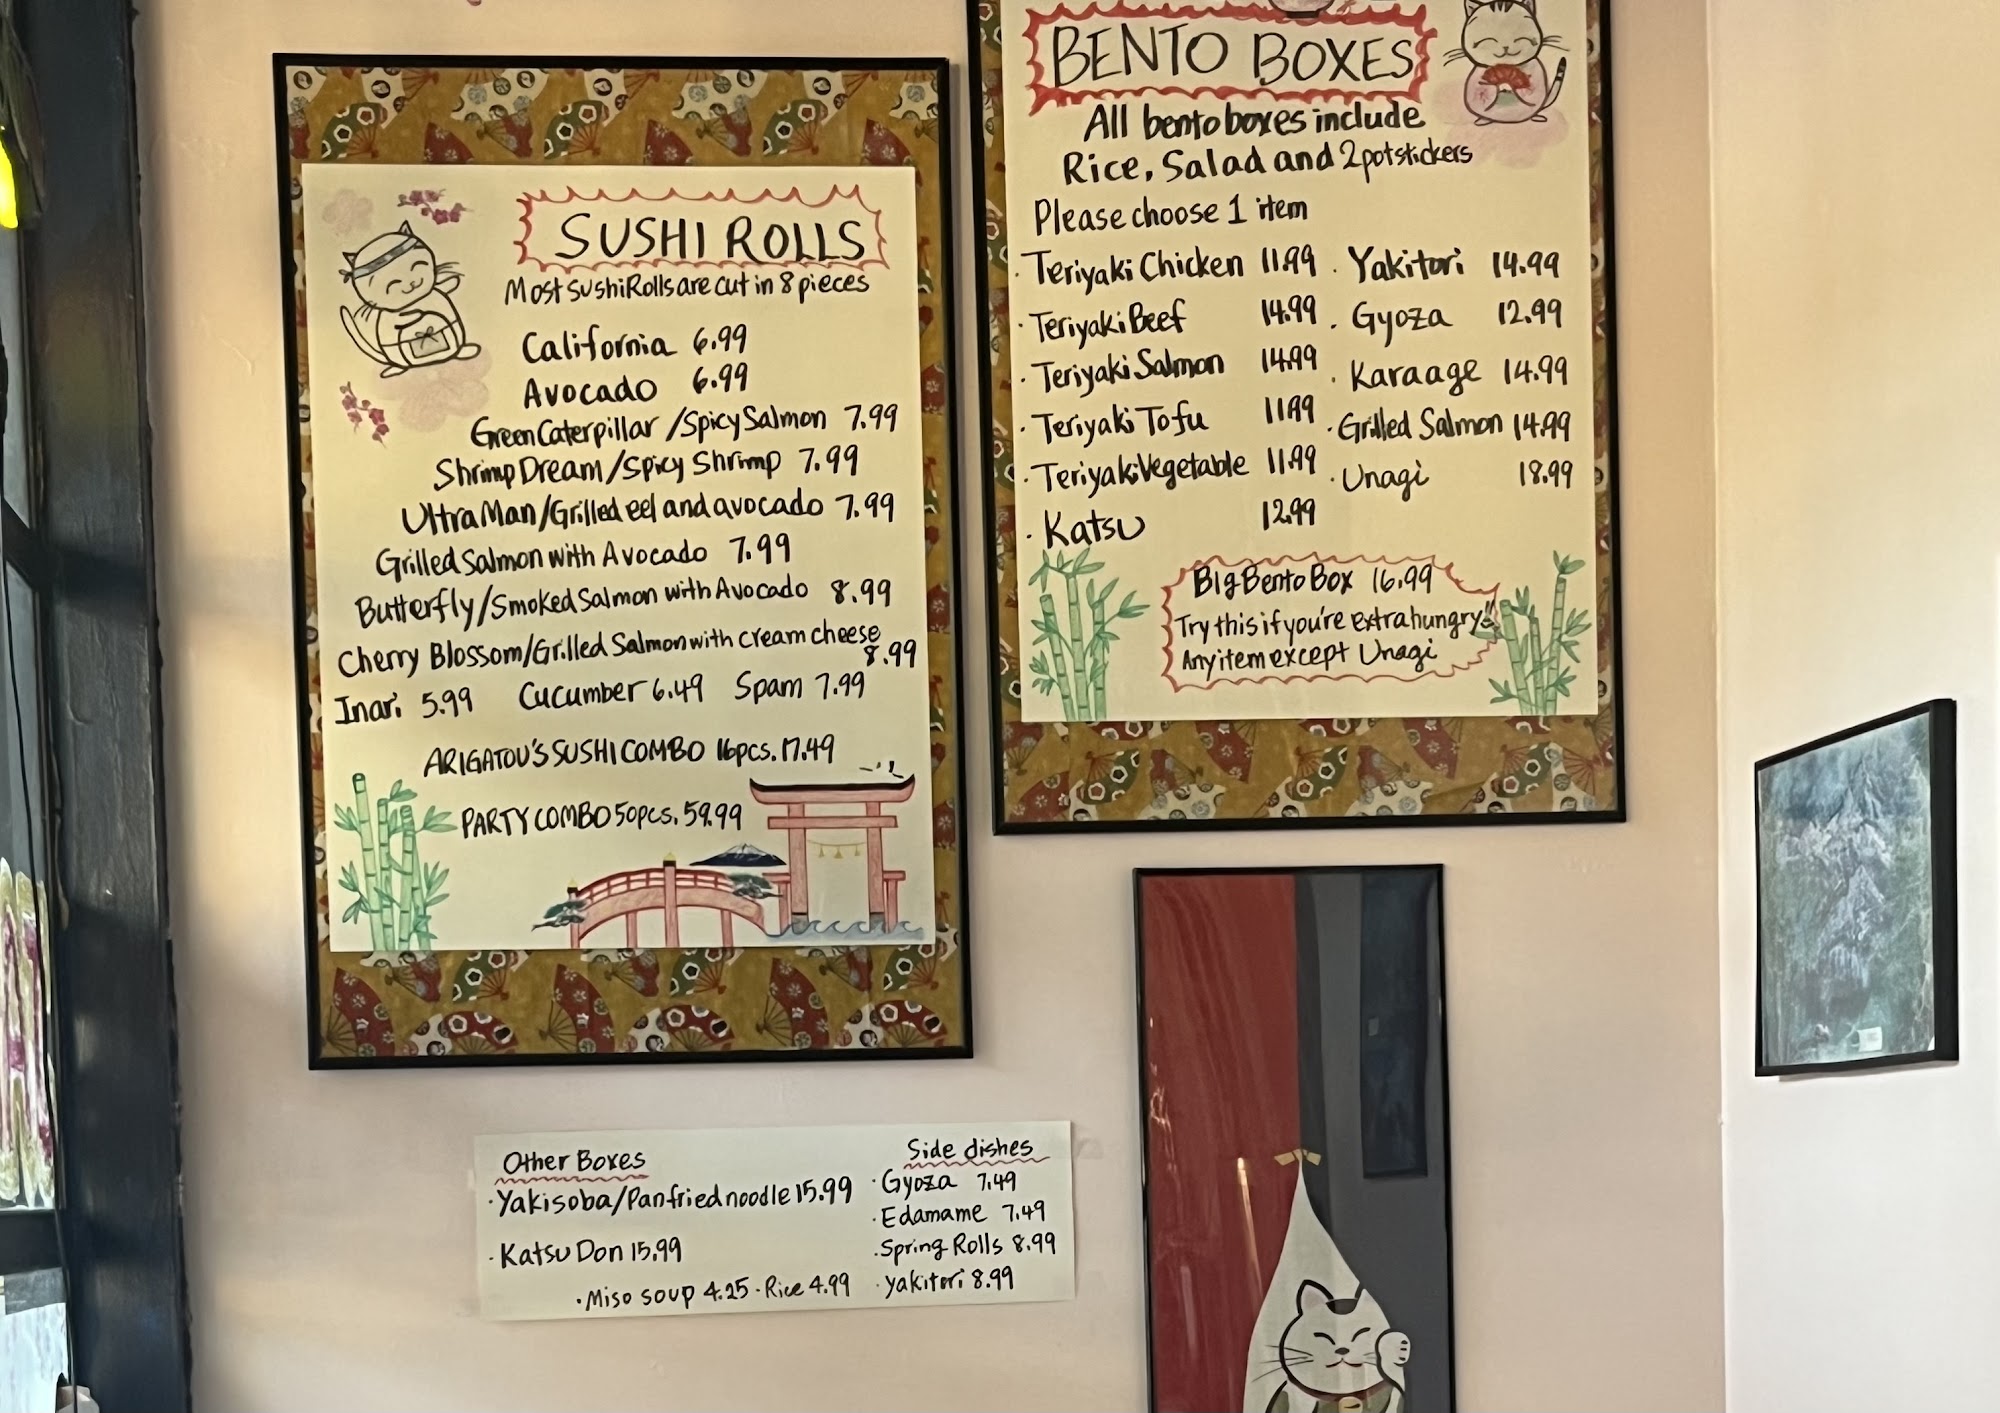 SUSHI ROLLS
Most sushi Rolls are cut in 8 pieces
California 6.99
Avocado 6.99
Green Caterpillar / Spicy Salmon 7.99
Shrimp Dream / Spicy Shrimp 7.99
Ultra Man / Grilled eel and avocado 7.99
Grilled Salmon with Avocado 7.99
Butterfly / Smoked Salmon with Avocado 8.99
Cherry Blossom / Grilled Salmon with cream cheese
8.99
Inari 5.99 Cucumber 6.49 Spam 7.99
ARIGATOU'S SUSHI COMBO 16pcs. 17.49
PARTY COMBO 50pcs. 59.99
BENTO BOXES
All bento boxes include
Rice, Salad and 2 potstickers
Please choose 1 item
· Teriyaki Chicken 11.99
· Teriyaki Beef 14.99
· Teriyaki Salmon 14.99
· Teriyaki Tofu 11.99
· Teriyaki Vegetable 11.99
· Katsu 12.99
· Yakitori 14.99
· Gyoza 12.99
· Karaage 14.99
· Grilled Salmon 14.99
· Unagi 18.99
Big Bento Box 16.99
Try this if you're extra hungry!!
Any item except Unagi
Other Boxes
· Yakisoba / Pan fried noodle 15.99
· Katsu Don 15.99
· Miso soup 4.25 · Rice 4.99
Side dishes
· Gyoza 7.49
· Edamame 7.49
· Spring Rolls 8.99
· Yakitori 8.99